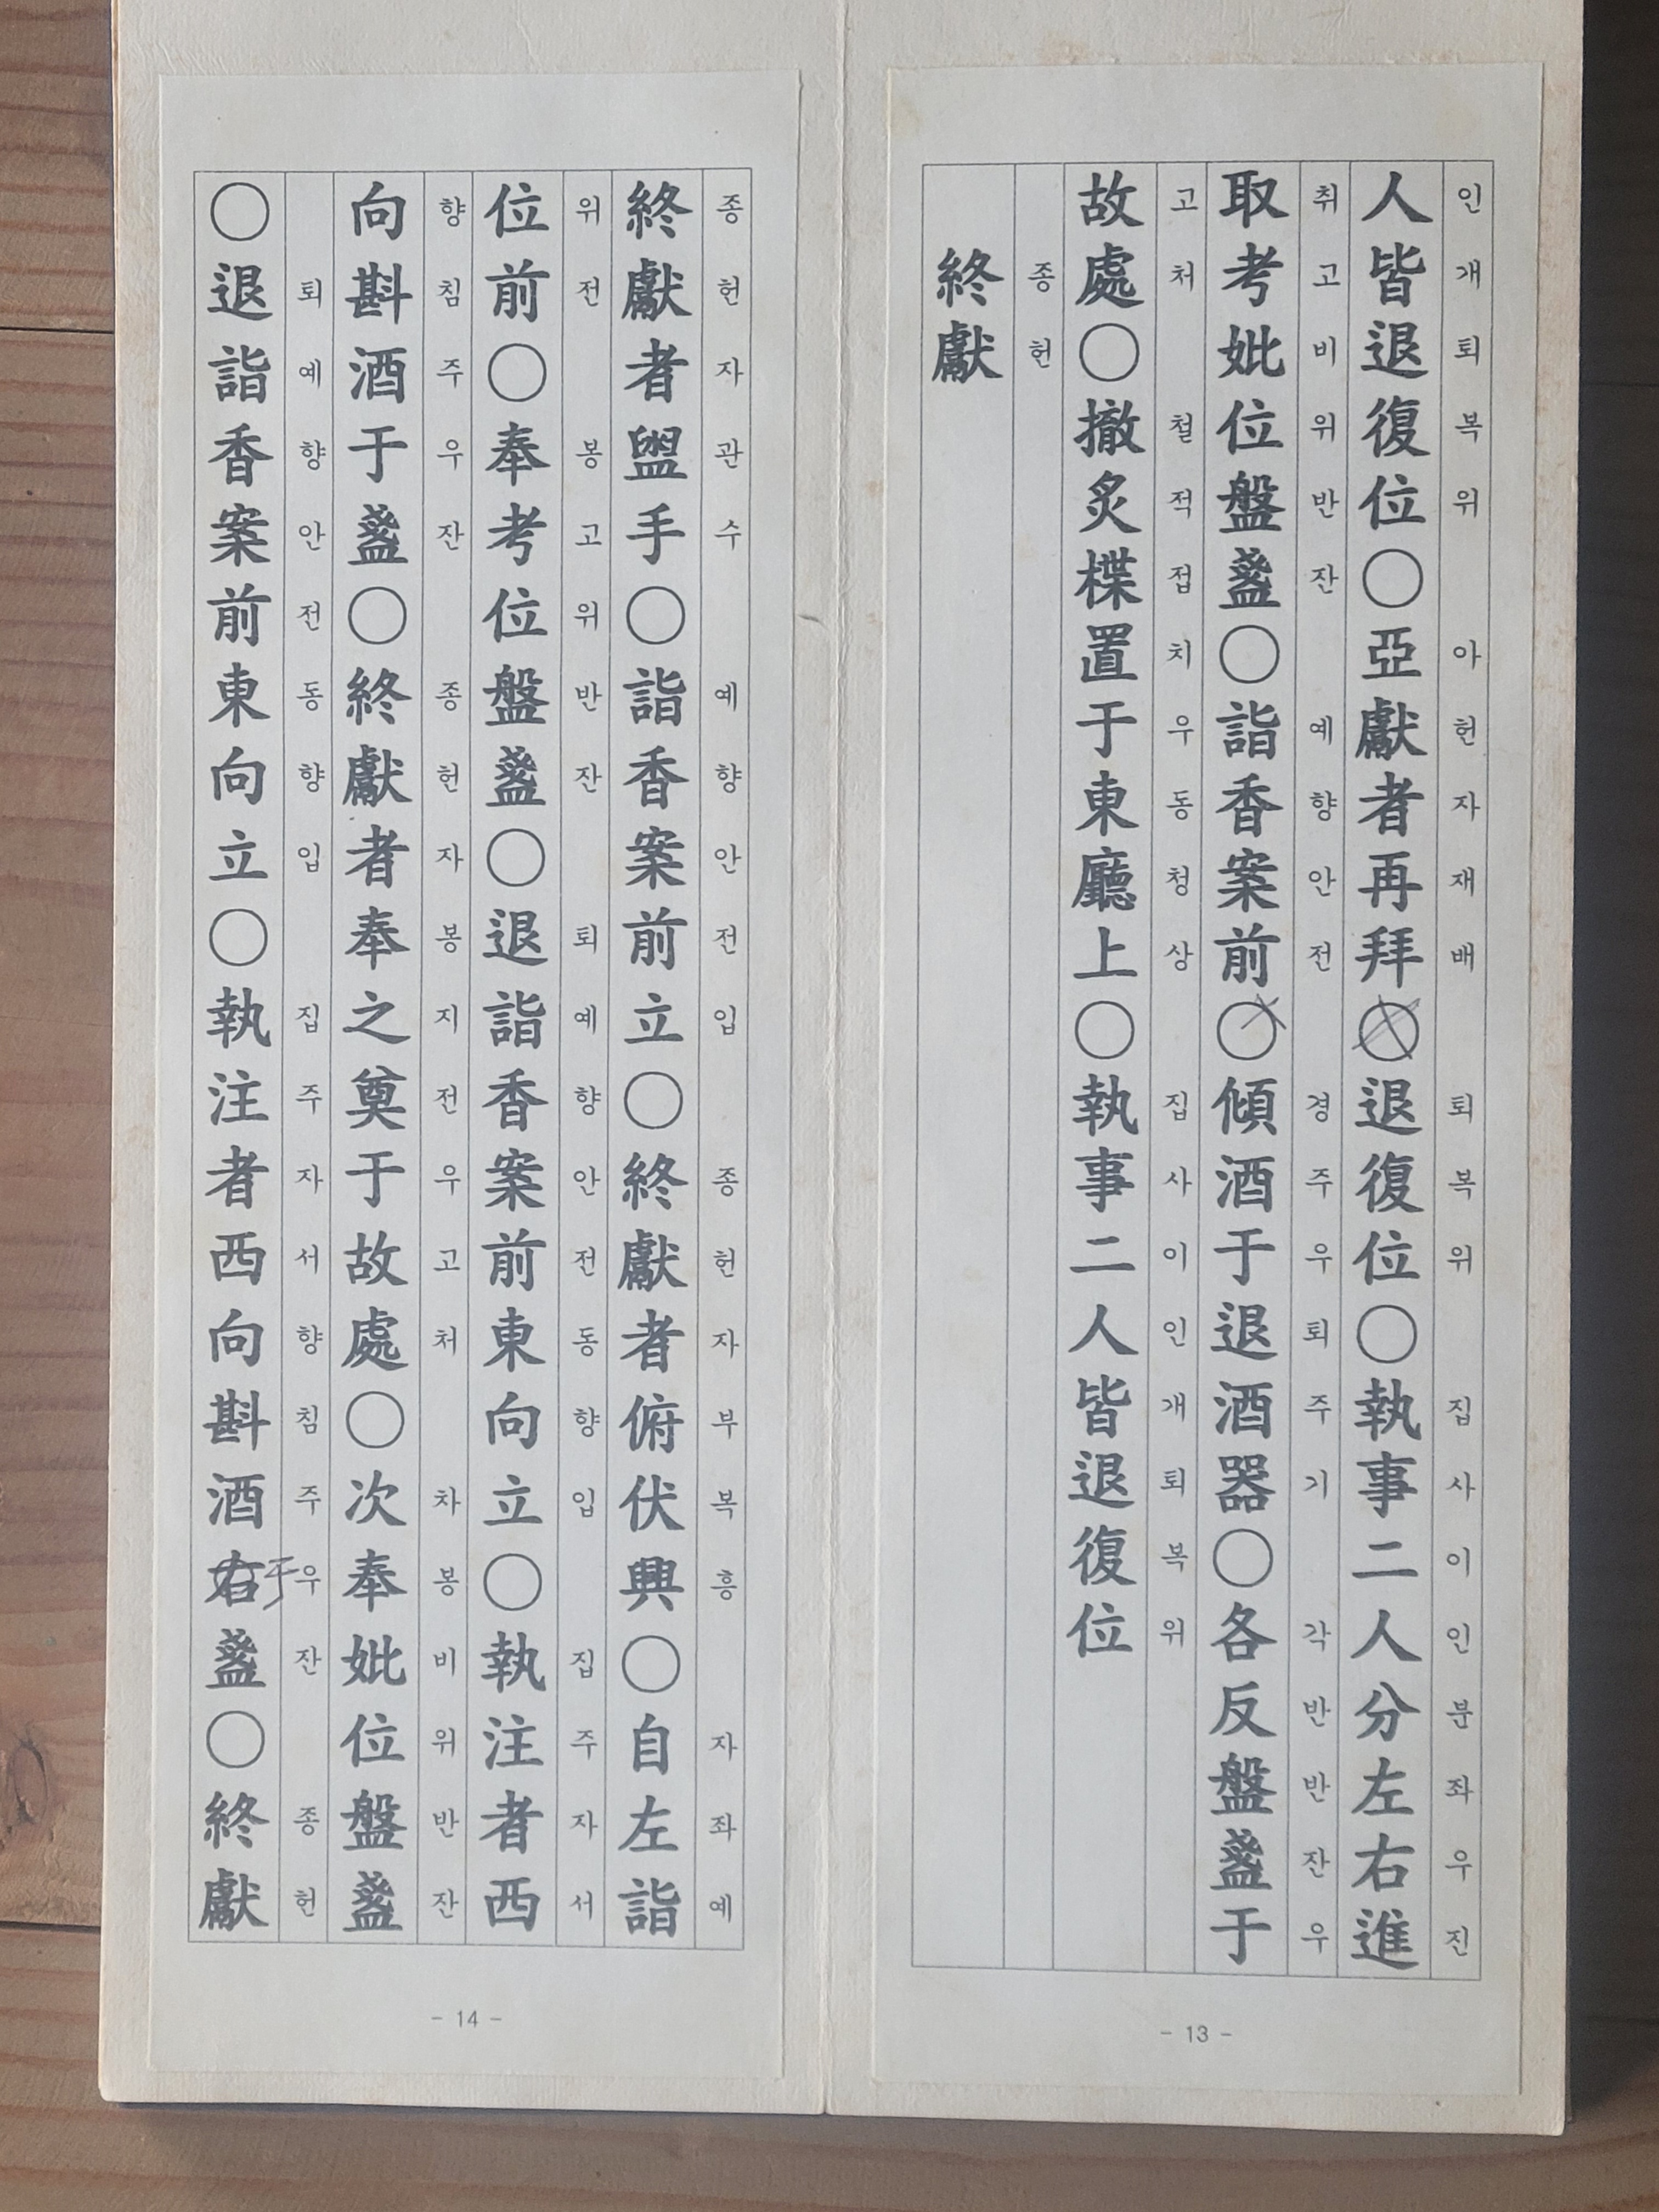 인개퇴복위 아헌자재배 퇴복위 집사이인분좌우진
人皆退復位○亞獻者再拜○退復位○執事二人分左右進
취고비위반잔 예향안전 경주우퇴주기 각반반잔우
取考妣位盤盞○詣香案前○傾酒于退酒器○各反盤盞于
고처 철적접치우동청상 집사이인개퇴복위
故處○撤炙楪置于東廳上○執事二人皆退復位
종헌
終獻
- 13 -
종헌자관수 예향안전입 종헌자부복흥 자좌예
終獻者盥手○詣香案前立○終獻者俯伏興○自左詣
위전 봉고위반잔 퇴예향안전동향입 집주자서
位前○奉考位盤盞○退詣香案前東向立○執注者西
향침주우잔 종헌자봉지전우고처 차봉비위반잔
向斟酒于盞○終獻者奉之奠于故處○次奉妣位盤盞
퇴예향안전동향입 집주자서향침주우잔 종헌
○退詣香案前東向立○執注者西向斟酒右于盞○終獻
- 14 -